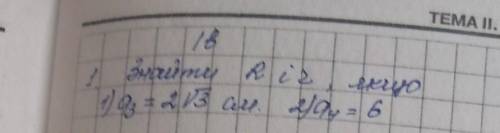 ТЕМА II.
1в
1 Знайти R і r, якщо
1) a₃ = 2√3 см. 2) a₄ = 6